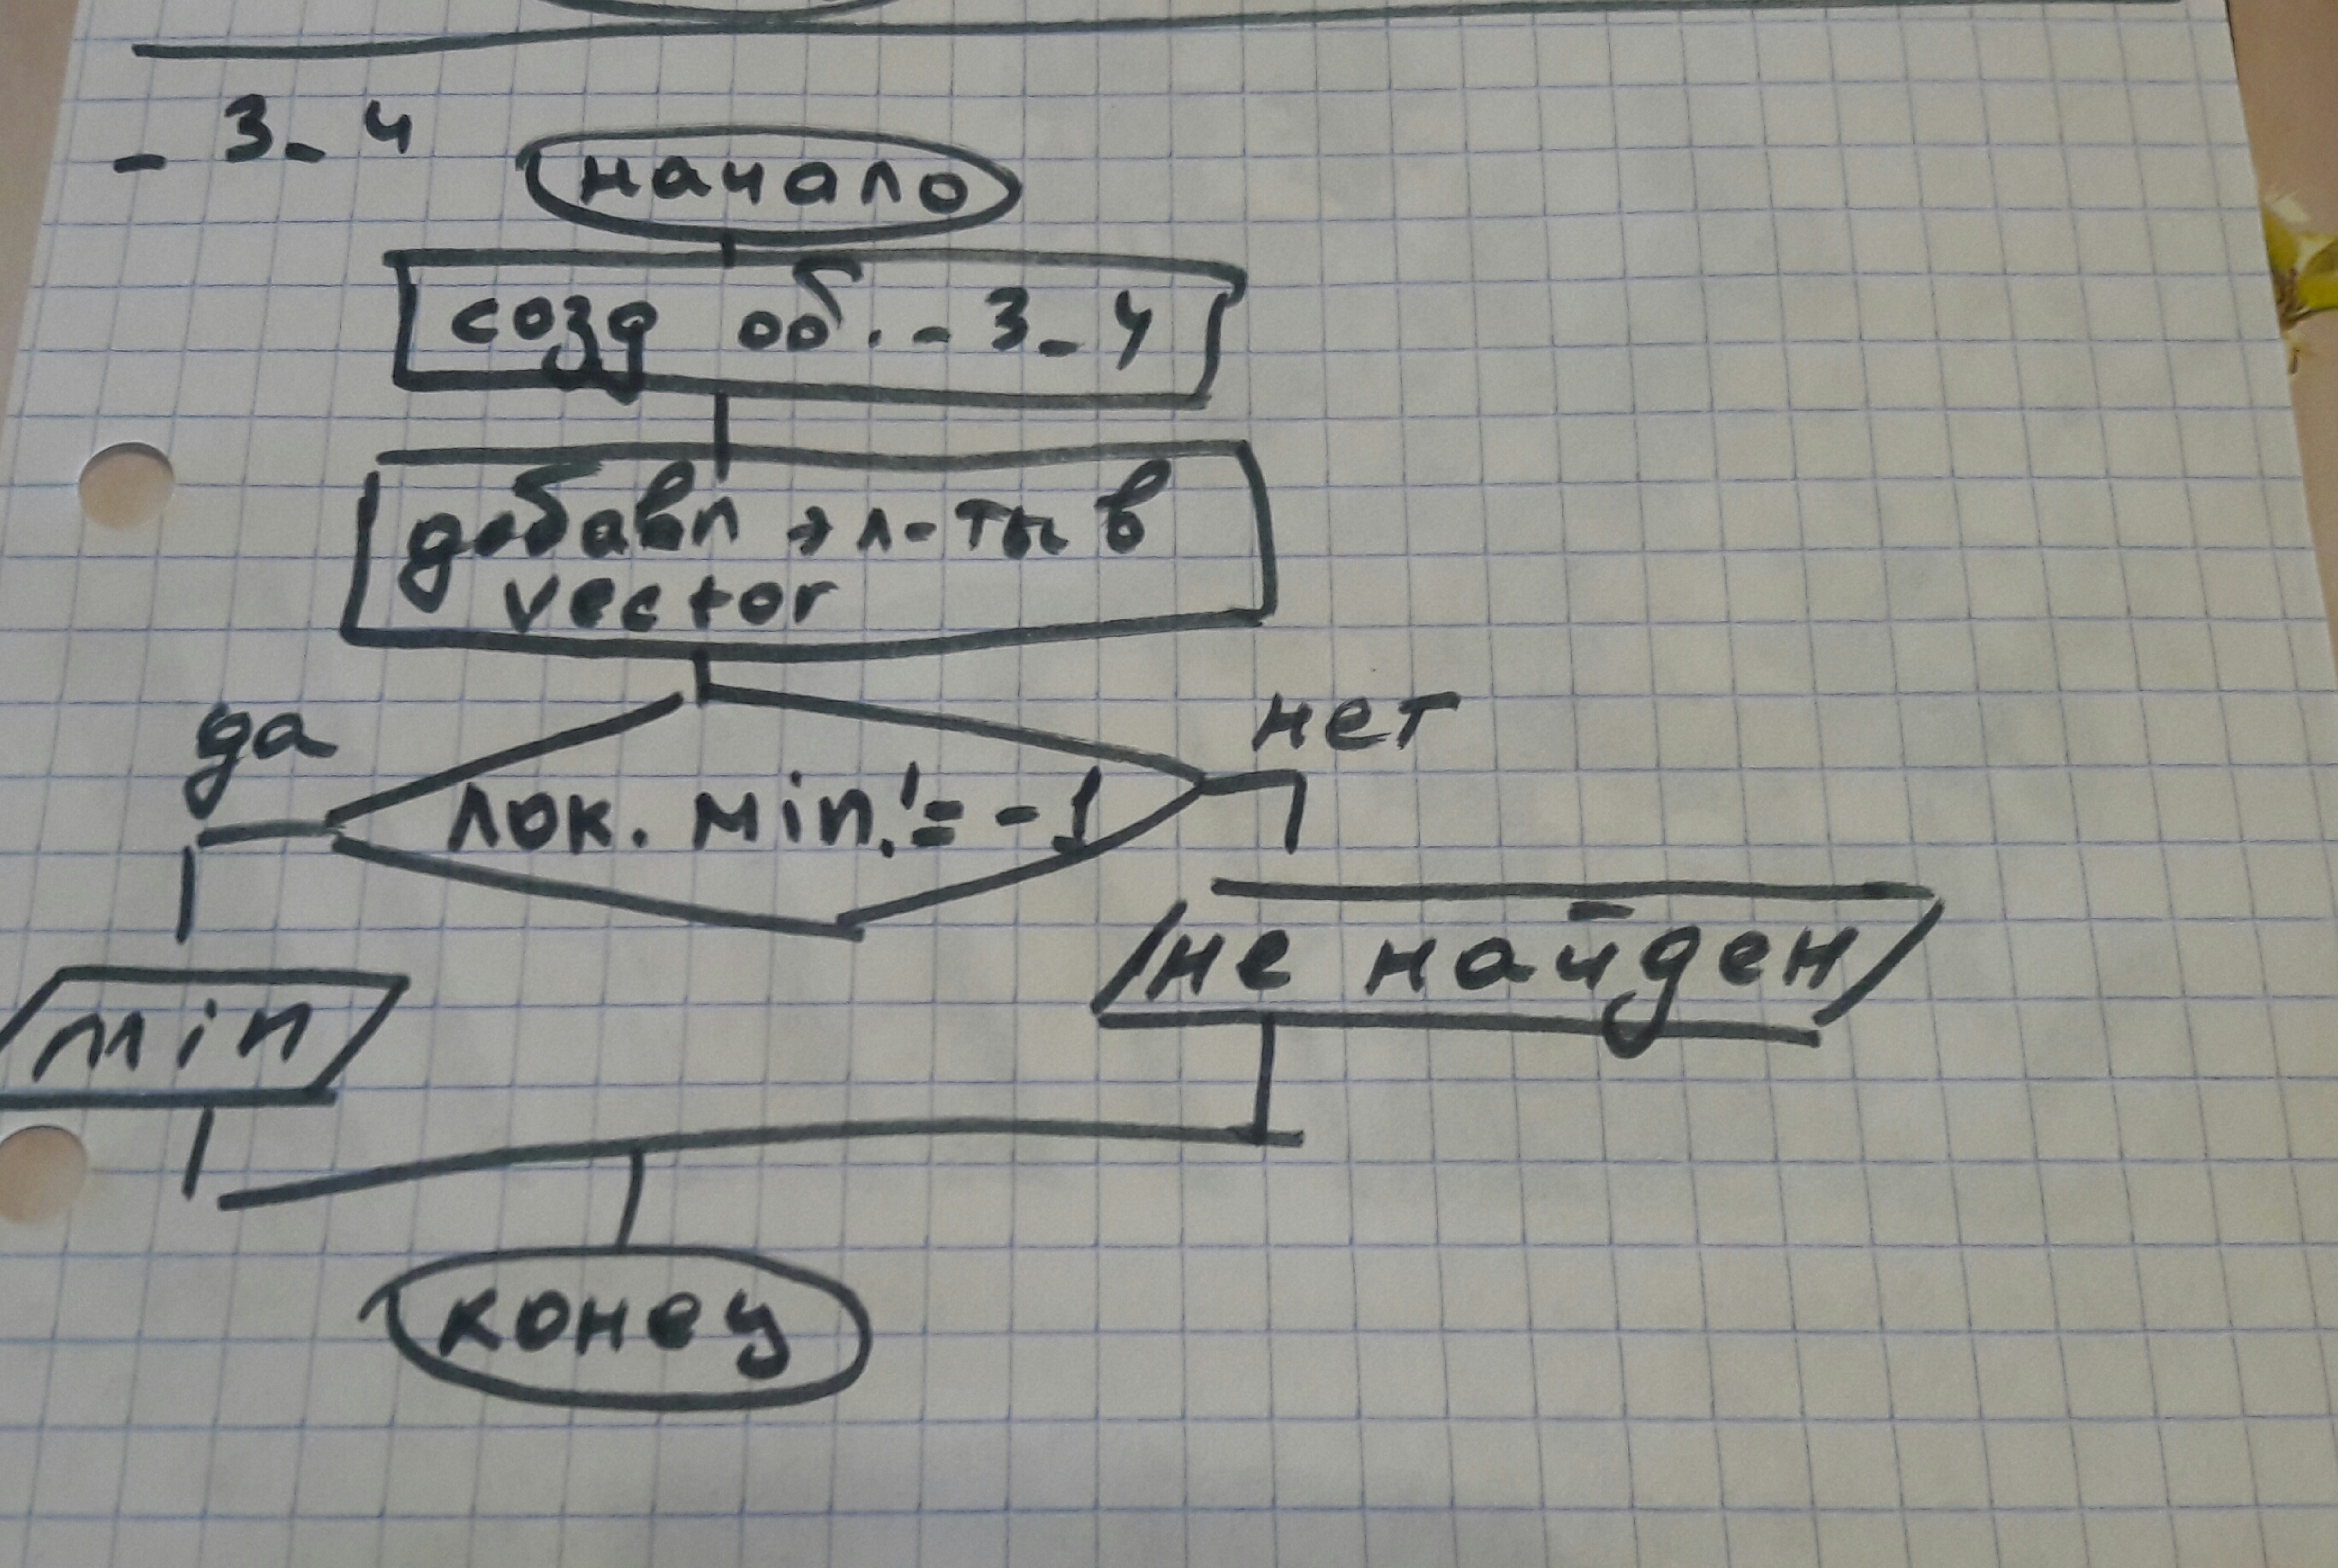 _ 3_4
начало
созд об. _3_4
добавл эл-ты в
vector
да
нет
лок. min != -1
не найден
min
конец